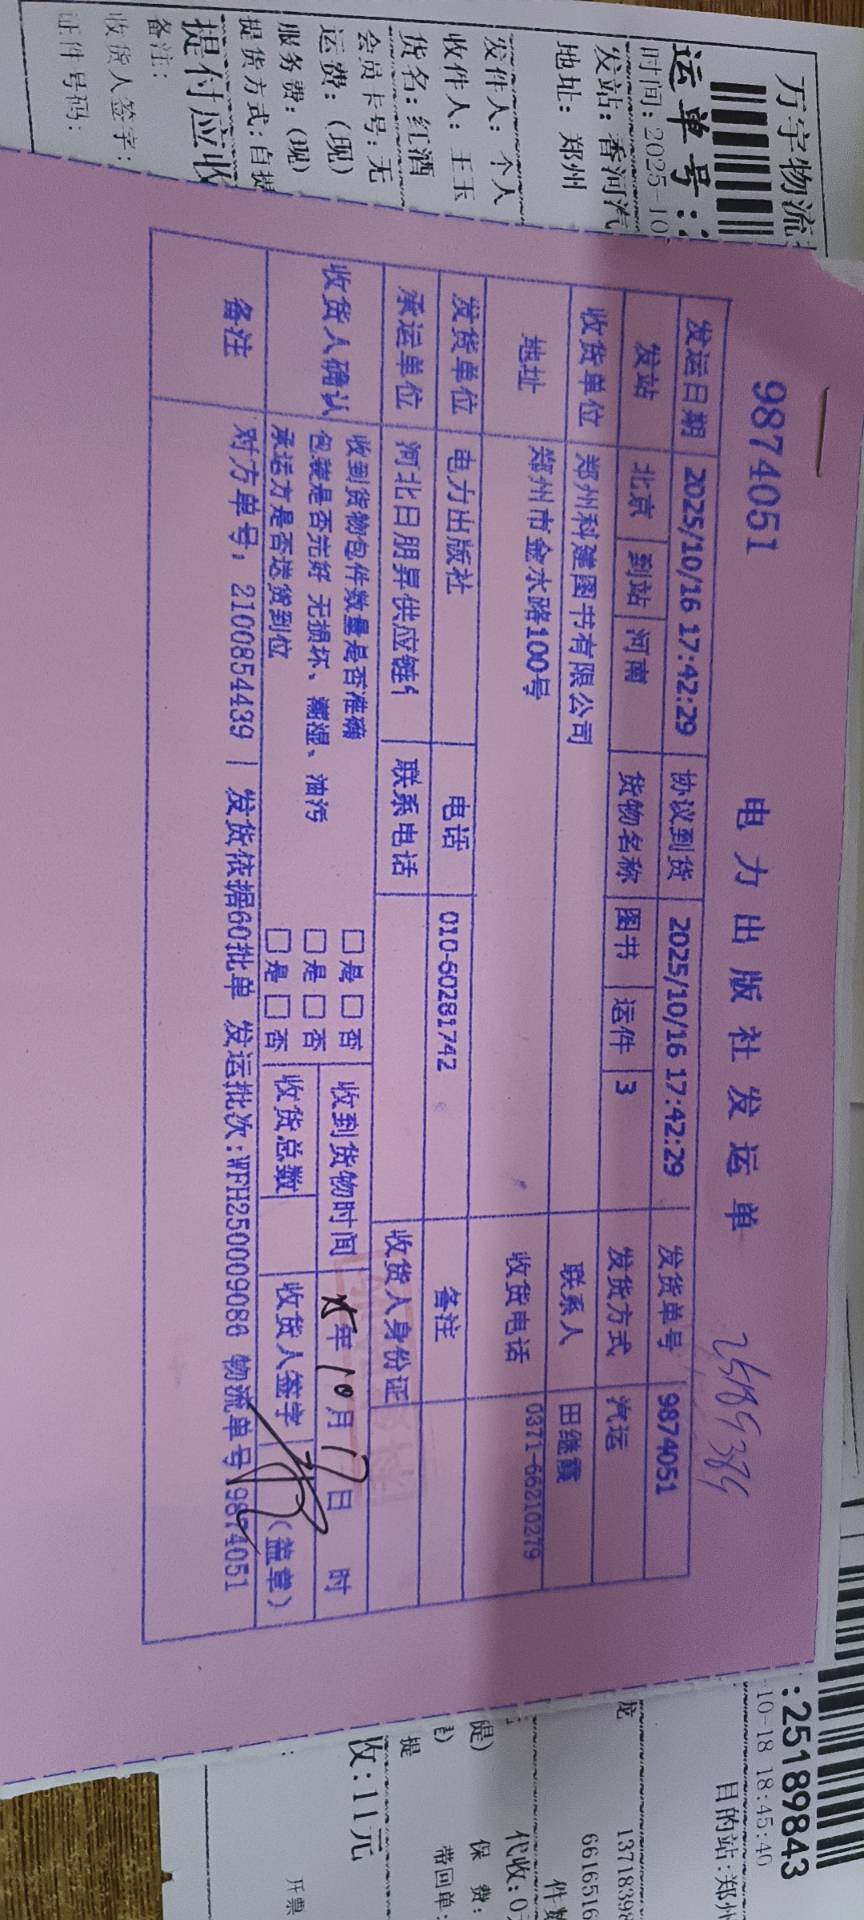 万宇物流
运单号:
时间: 2025-10
发站: 香河汽
地址: 郑州
发件人: 个人
收件人: 王玉
货名: 红酒
会员卡号: 无
运费: (现)
服务费: (现)
提货方式: 自提
提付应收
备注:
收货人签字:
证件号码:
9874051
电力出版社发运单
25189384
发运日期 2025/10/16 17:42:29 协议到货 2025/10/16 17:42:29 发货单号 9874051
发站 北京 到站 河南 货物名称 图书 运件 3 发货方式 汽运
收货单位 郑州科建图书有限公司 联系人 田继霞
地址 郑州市金水路100号 收货电话 0371-66210279
发货单位 电力出版社 电话 010-60281742 备注
承运单位 河北日朋昇供应链 联系电话 收货人身份证
收货人确认 收到货物包件数量是否准确 □是□否 收到货物时间 年10月17日 时
包装是否完好 无损坏、潮湿、油污 □是□否
承运方是否送货到位 □是□否 收货总数 收货人签字 (盖章)
备注 对方单号: 2100854439 | 发货依据60批单 发运批次:WFH250009086 物流单号9874051
:25189843
10-18 18:45:40
目的站:郑州
龙 13718398
6616516
件数
代收:0
提) 保费:
提 带回单:
收:11元
开票